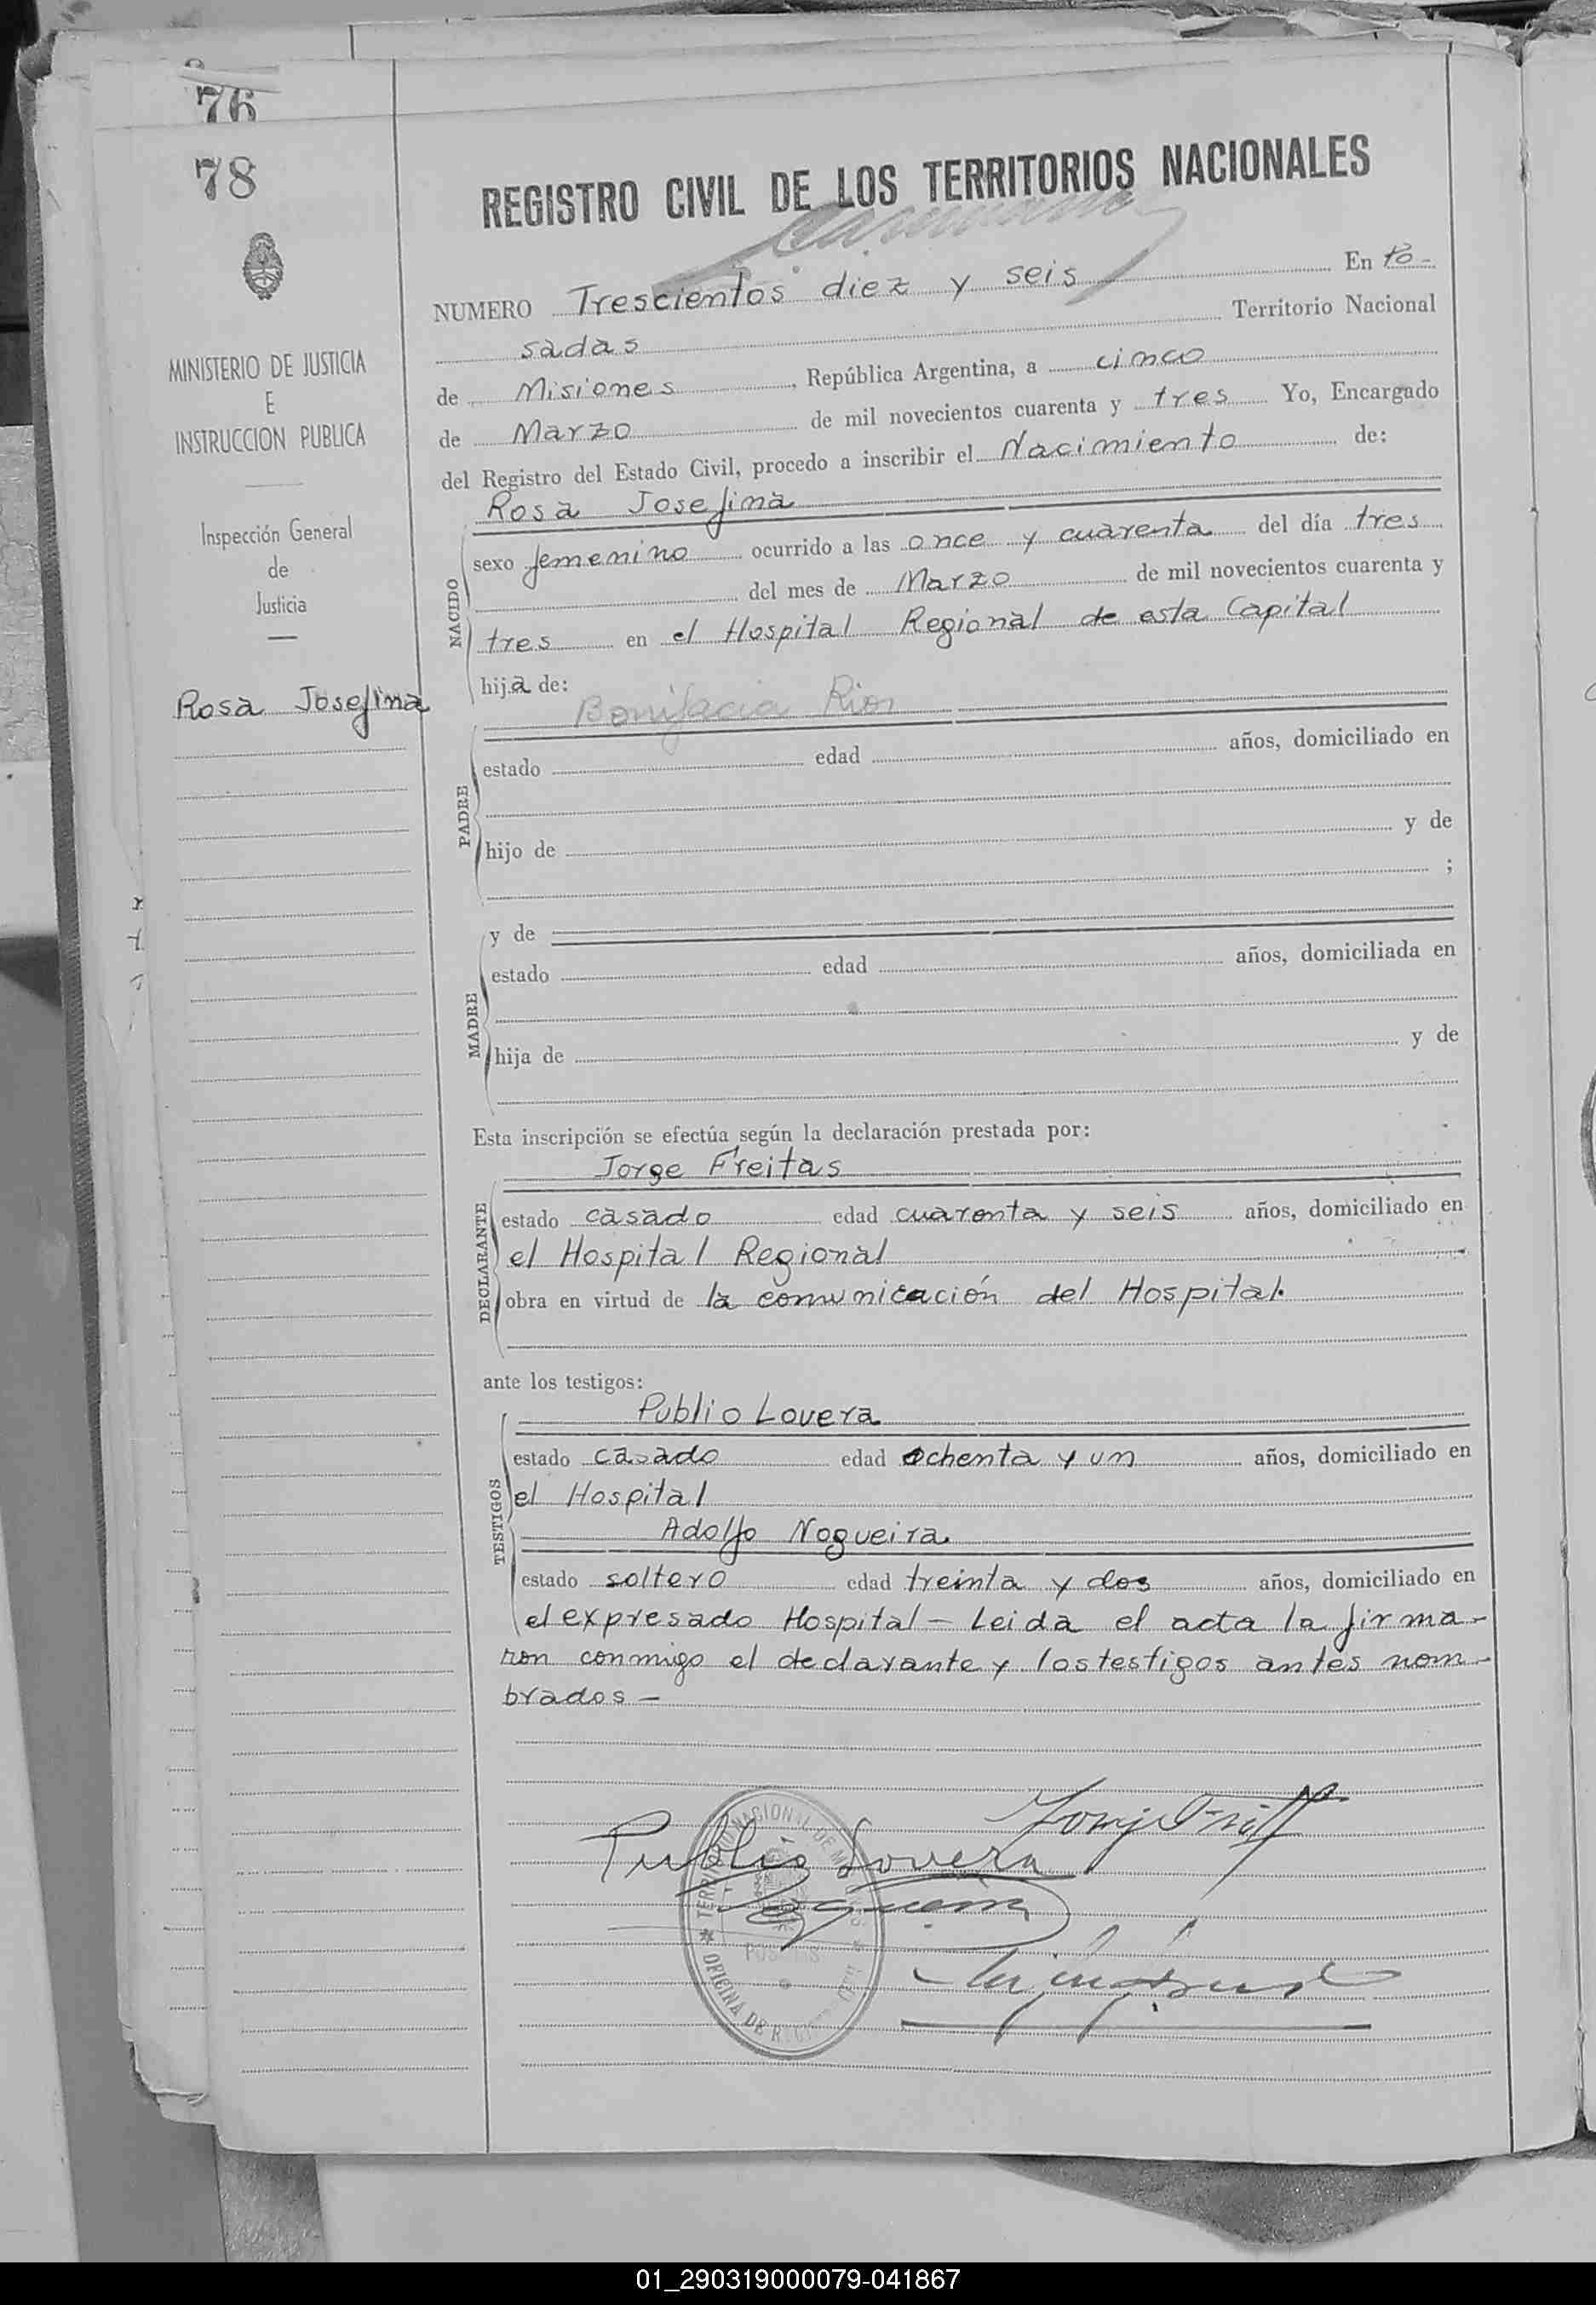 76
78
REGISTRO CIVIL DE LOS TERRITORIOS NACIONALES
NUMERO Trescientos diez y seis En Po-
sadas Territorio Nacional
de Misiones, República Argentina, a cinco
de Marzo de mil novecientos cuarenta y tres Yo, Encargado
del Registro del Estado Civil, procedo a inscribir el Nacimiento de:
Rosa Josefina
NACIDO
sexo femenino ocurrido a las once y cuarenta del día tres
del mes de Marzo de mil novecientos cuarenta y
tres en el Hospital Regional de esta Capital
hija de:
Bonifacia Rios
PADRE
estado edad años, domiciliado en
hijo de y de
;
y de
MADRE
estado edad años, domiciliada en
hija de y de
Esta inscripción se efectúa según la declaración prestada por:
Jorge Freitas
DECLARANTE
estado casado edad cuarenta y seis años, domiciliado en
el Hospital Regional
obra en virtud de la comunicación del Hospital.
ante los testigos:
Publio Lovera
TESTIGOS
estado casado edad ochenta y un años, domiciliado en
el Hospital
Adolfo Nogueira
estado soltero edad treinta y dos años, domiciliado en
el expresado Hospital - Leida el acta la firma-
ron conmigo el declarante y los testigos antes nom-
brados -
Publio Lovera
Nogueira
TERRITORIO NACIONAL DE MISIONES
POSADAS
OFICINA DE REGISTRO CIVIL
MINISTERIO DE JUSTICIA
E
INSTRUCCION PUBLICA
Inspección General
de
Justicia
Rosa Josefina
01_290319000079-041867